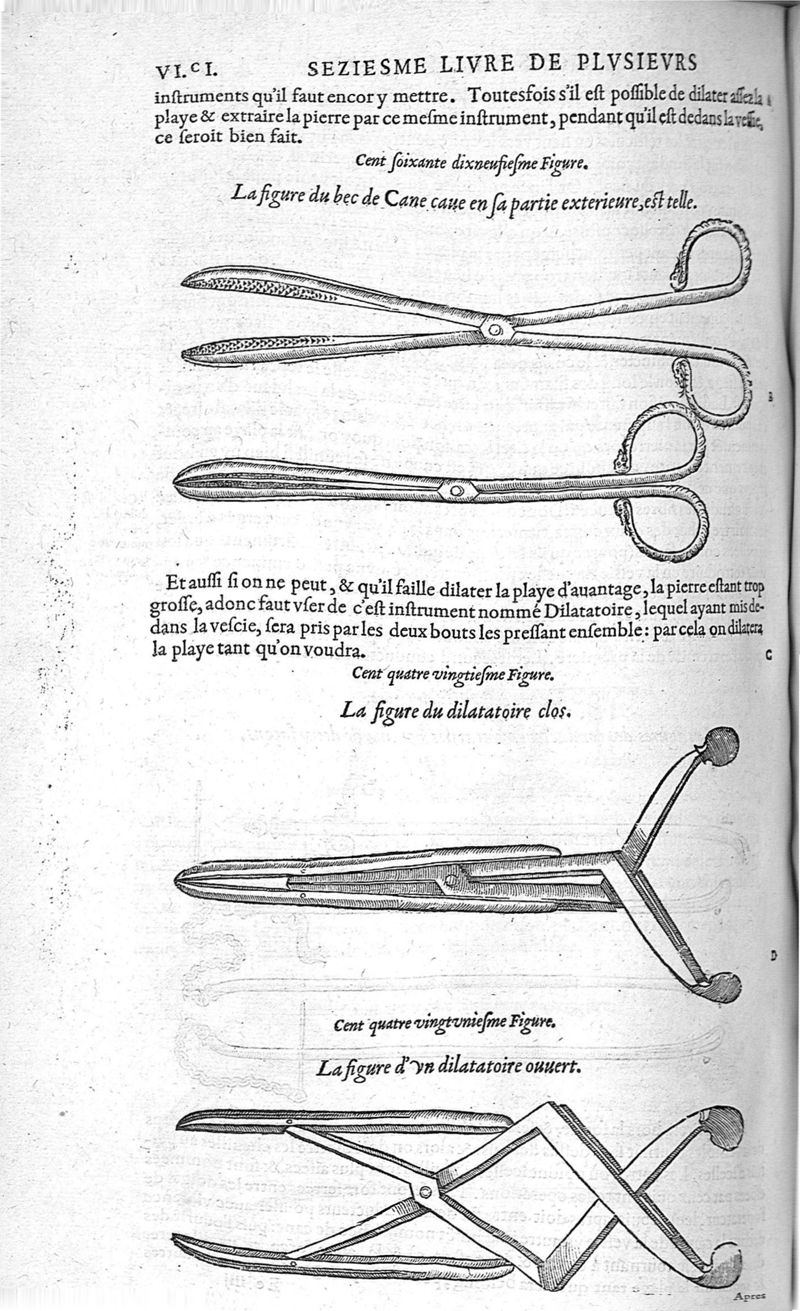 VI.ᶜ I. SEZIESME LIVRE DE PLVSIEVRS
inſtruments qu'il faut encor y mettre. Toutesfois s'il eſt poſſible de dilater aſſez la
playe & extraire la pierre par ce meſme inſtrument, pendant qu'il eſt dedans la veſſie,
ce ſeroit bien fait.
Cent ſoixante dixneufieſme Figure.
La figure du bec de Cane caue en ſa partie exterieure, eſt telle.
B
Et auſſi ſi on ne peut, & qu'il faille dilater la playe d'auantage, la pierre eſtant trop
groſſe, adonc faut vſer de c'eſt inſtrument nommé Dilatatoire, lequel ayant mis de-
dans la veſcie, ſera pris par les deux bouts les preſſant enſemble: par cela on dilatera
la playe tant qu'on voudra.
C
Cent quatre vingtieſme Figure.
La figure du dilatatoire clos.
D
Cent quatre vingtvnieſme Figure.
La figure d'vn dilatatoire ouuert.
Apres